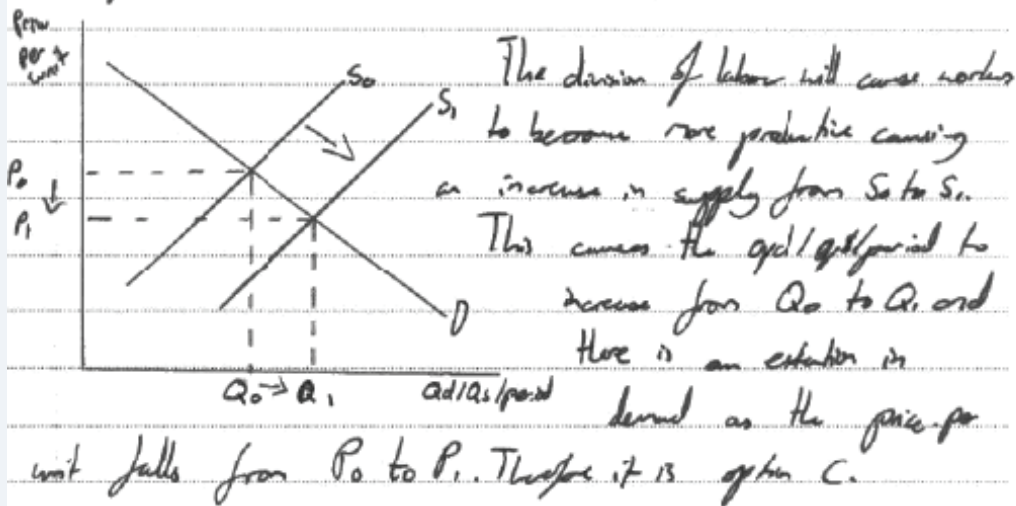 Price
per
unit
S₀
S₁
P₀
P₁
D
Q₀ → Q₁
Qd/Qs/period
The division of labour will cause workers
to become more productive causing
an increase in supply from S₀ to S₁.
This causes the qd/qs/period to
increase from Q₀ to Q₁ and
there is an extention in
demand as the price per
unit falls from P₀ to P₁. Therefore it is option C.